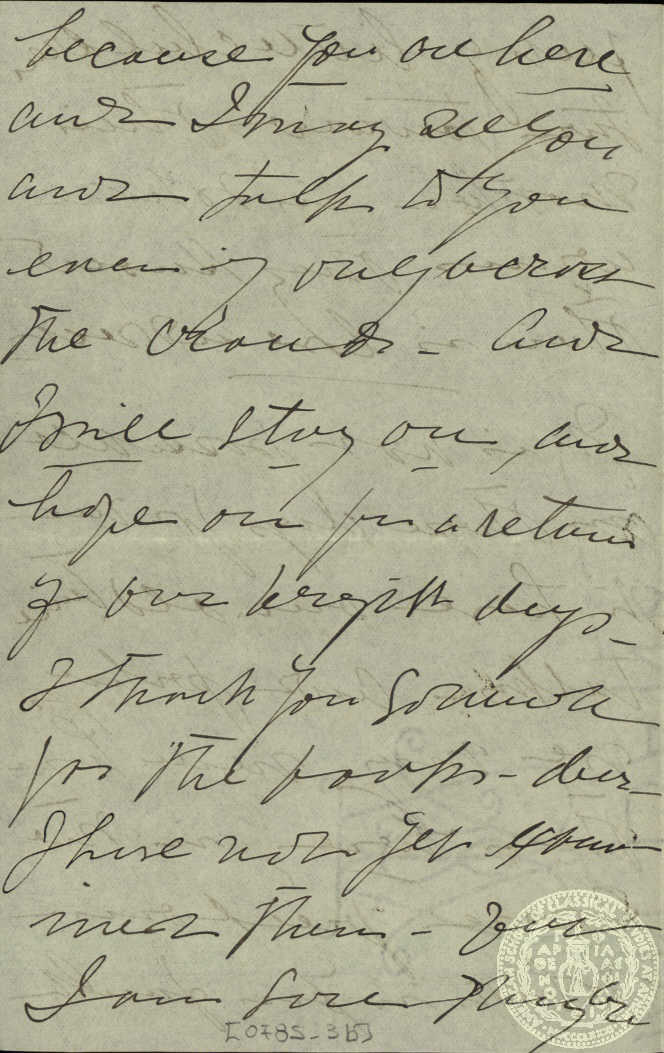 because you are here
and I may see you
and talk to you
even if only across
the crowd - And
I will stay on, and
hope on for a return
of our bright days -
I thank you so much
for the books - dear
I have not yet exam-
ined them - but
I am sure
[0785-3b]